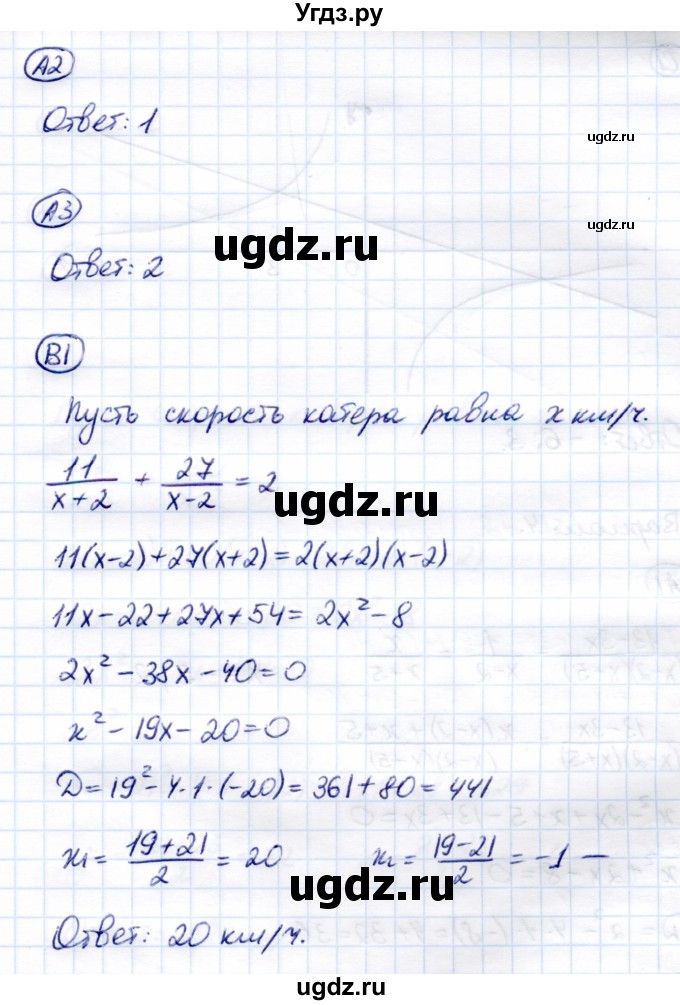 Угдз.ру
А2
Ответ: 1
ugdz.ru
А3
ugdz.ru
ugdz.ru
Ответ: 2
В1
Пусть скорость катера равна x км/ч.
11/(x+2) + 27/(x-2) = 2
ugdz.ru
11(x-2)+27(x+2)=2(x+2)(x-2)
11x-22+27x+54=2x²-8
2x²-38x-40=0
x²-19x-20=0
D=19²-4·1·(-20)=361+80=441
x₁=(19+21)/2=20 x₂=(19-21)/2=-1 —
ugdz.ru
Ответ: 20 км/ч.
ugdz.ru